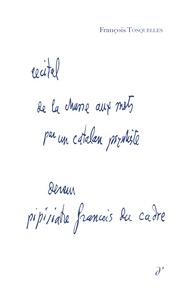 François TOSQUELLES
recital
de la chasse aux mots
par un catalan psychiste
devenu
pipisiatre francais du cadre
∂'